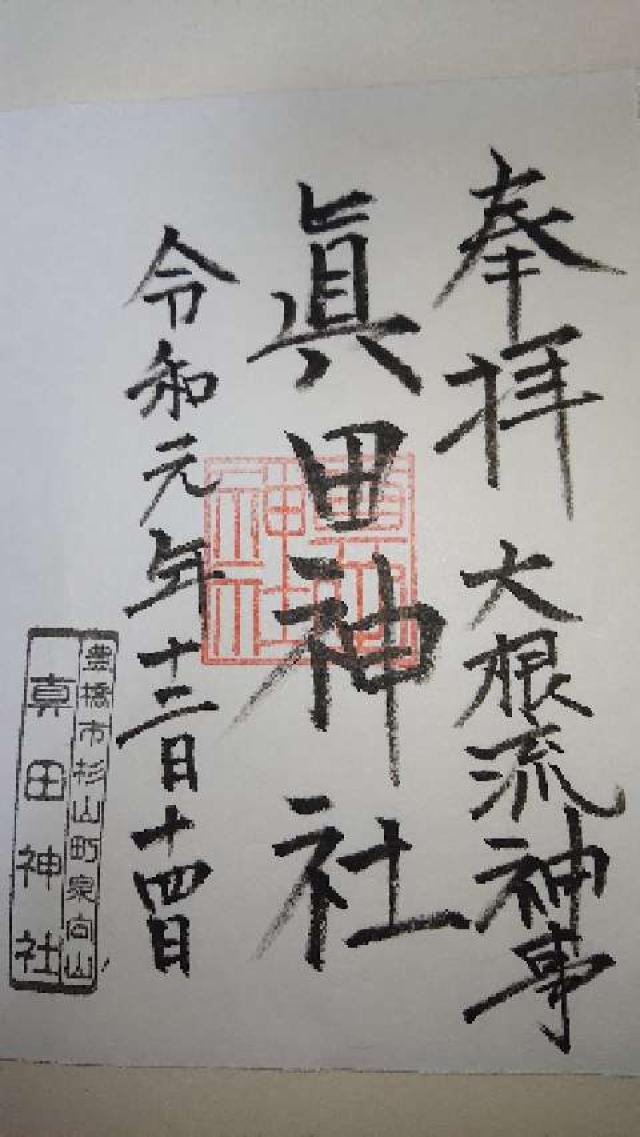 奉拝 大根流神事
眞田神社
眞田神社
令和元年十二月十四日
豊橋市杉山町泉向山
真田神社